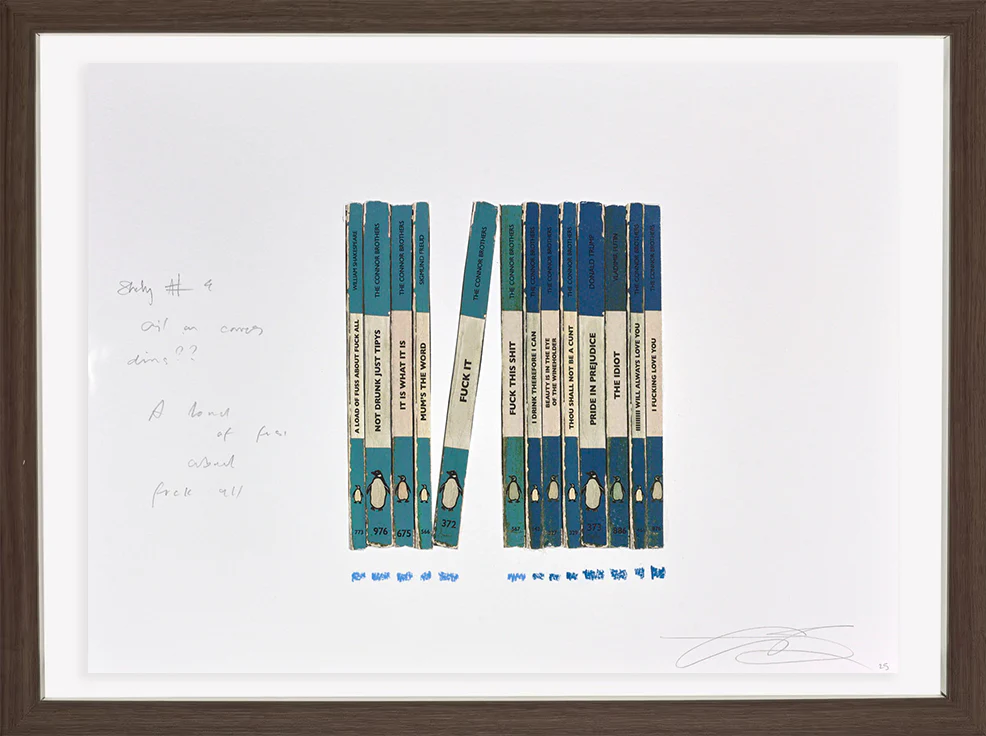 Study # 4
oil on canvas
dims??
A load
of fuss
about
fuck all
WILLIAM SHAKESPEARE
A LOAD OF FUSS ABOUT FUCK ALL
773
THE CONNOR BROTHERS
NOT DRUNK JUST TIPYS
976
THE CONNOR BROTHERS
IT IS WHAT IT IS
675
SIGMUND FREUD
MUM'S THE WORD
THE CONNOR BROTHERS
FUCK IT
372
THE CONNOR BROTHERS
FUCK THIS SHIT
567
THE CONNOR BROTHERS
I DRINK THEREFORE I CAN
THE CONNOR BROTHERS
BEAUTY IS IN THE EYE
OF THE WINEHOLDER
THE CONNOR BROTHERS
THOU SHALT NOT BE A CUNT
DONALD TRUMP
PRIDE IN PREJUDICE
373
VLADIMIR PUTIN
THE IDIOT
THE CONNOR BROTHERS
IIIIIIIII WILL ALWAYS LOVE YOU
THE CONNOR BROTHERS
I FUCKING LOVE YOU
25